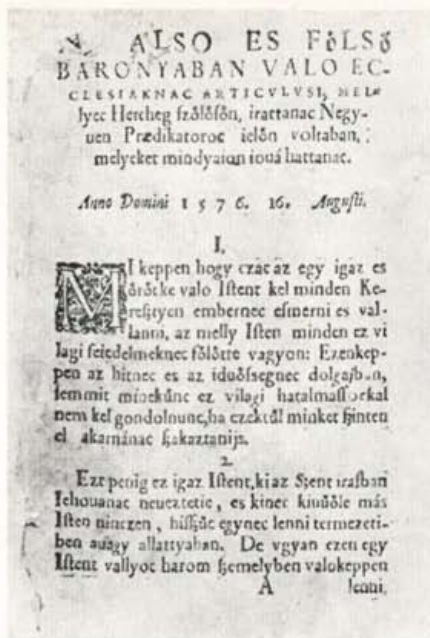 ALSO ES FőLSő
BARONYABAN VALO EC-
CLESIAKNAC ARTICVLVSI, MEL-
lyec Hercheg szőlősőn, irattanac Negy-
uen Prædikatoroc ielőn voltaban,
melyeket mindyaian iouá hattanac.
Anno Domini 1576. 16. Augusti.
I.
MI keppen hogy czac az egy igaz es
őrőcke valo Istent kel minden Ke-
resztyen embernec esmerni es val-
lanni, az melly Isten minden ez vi
lagi feiedelmeknec főlőtte vagyon: Ezenkep-
pen az hitnec es az iduősségnec dolgaiban,
semmit minekűnc ez vilagi hatalmassockal
nem kel gondolnunc, ha ezektűl minket szinten
el akarnánac szakaztanijs.
2.
Ezt penig ez igaz Istent, ki az Szent irasban
Iehouanac neueztetic, es kinec kiuűőle más
Isten ninczen, hisszűc egynec lenni termezeti-
ben auagy allattyaban. De vgyan ezen egy
Istent vallyoc harom szemelyben valokeppen
A lenni,